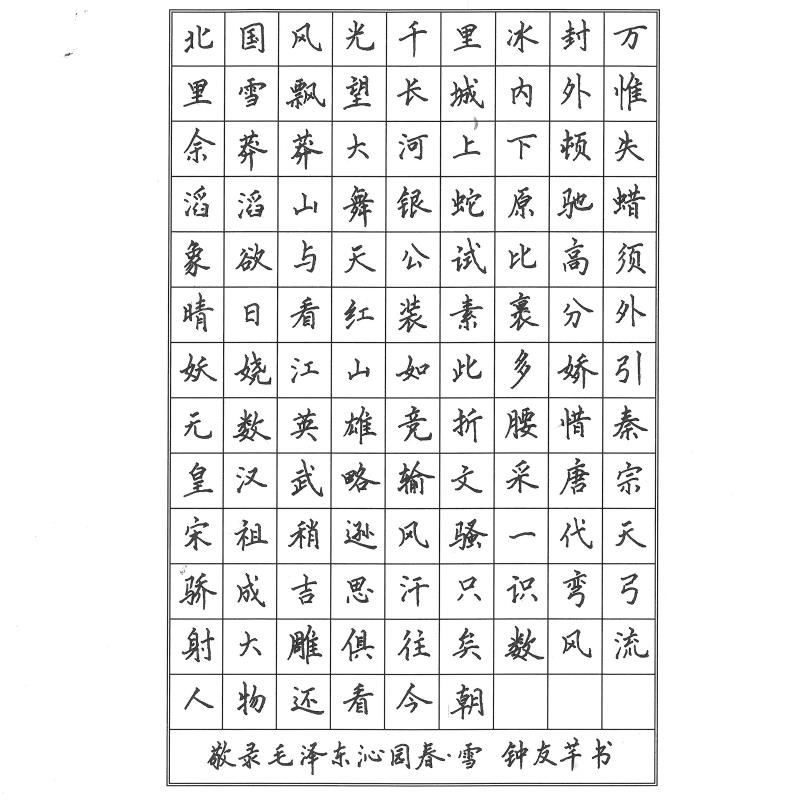 北国风光千里冰封万
里雪飘望长城内外惟
余莽莽大河上下顿失
滔滔山舞银蛇原驰蜡
象欲与天公试比高须
晴日看红装素裹分外
妖娆江山如此多娇引
元数英雄竞折腰惜秦
皇汉武略输文采唐宗
宋祖稍逊风骚一代天
骄成吉思汗只识弯弓
射大雕俱往矣数风流
人物还看今朝
敬录毛泽东沁园春·雪 钟友芊书